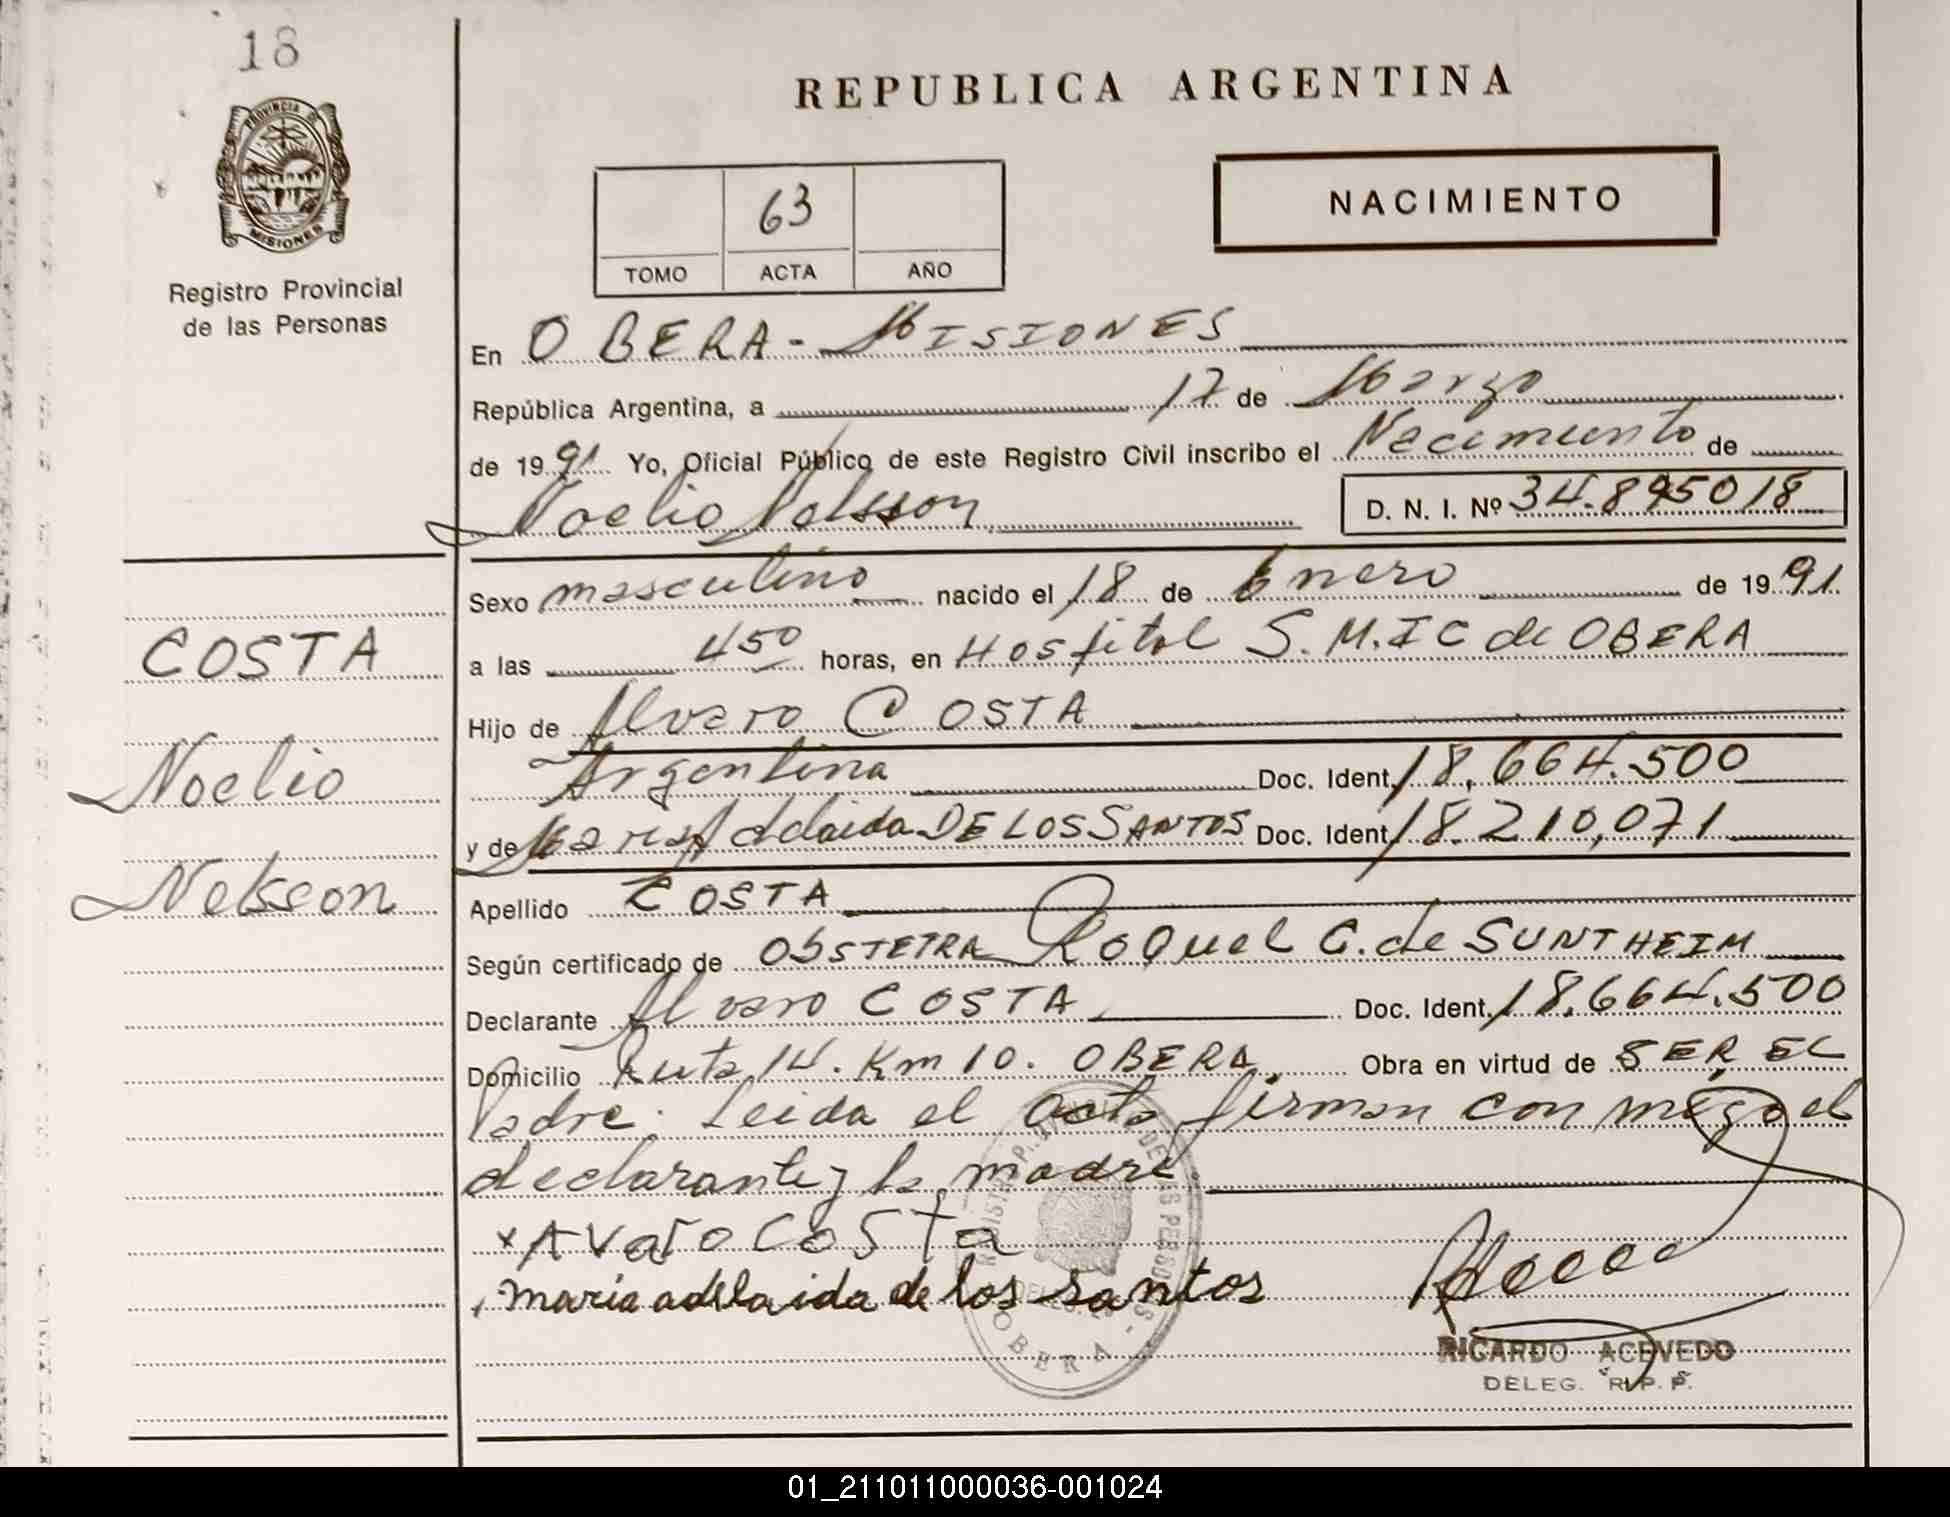 18
REPUBLICA ARGENTINA
PROVINCIA DE
MISIONES
Registro Provincial
de las Personas
63
TOMO ACTA AÑO
NACIMIENTO
En OBERA - MISIONES
República Argentina, a 17 de Marzo
de 1991 Yo, Oficial Público de este Registro Civil inscribo el Nacimiento de
Noelio Nelsson D. N. I. Nº 34.895018
Sexo masculino nacido el 18 de Enero de 1991
a las 4 50 horas, en Hospital S.M.IC de OBERA
Hijo de Alvaro COSTA
Argentina Doc. Ident. 18.664.500
y de Maria Adelaida DE LOS SANTOS Doc. Ident. 18.210,071
Apellido COSTA
Según certificado de OBSTETRA Raquel G. de SUNTHEIM
Declarante Alvaro COSTA Doc. Ident. 18.664.500
Domicilio Ruta 14. Km 10. OBERA Obra en virtud de SER EL
Padre. Leida el acta firman con migo el
declarante y la madre
x Avaro Costa
maria adelaida de los santos
COSTA
Noelio
Nelsson
OBERA
RICARDO ACEVEDO
DELEG. R. P. P.
01_211011000036-001024